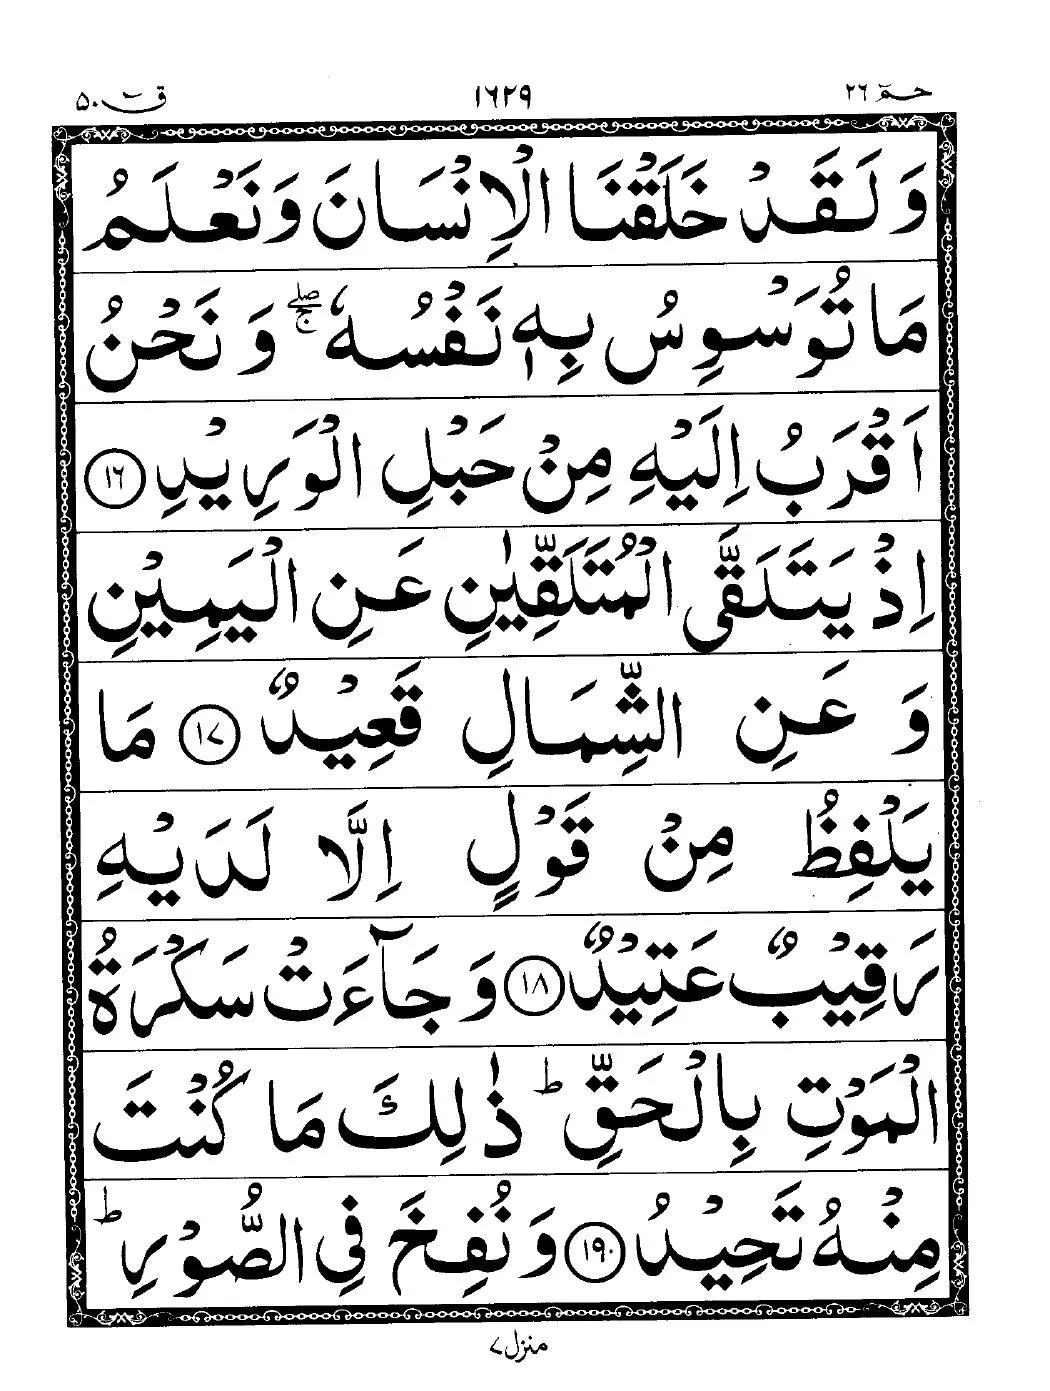 حٰمٓ ٢٦ ١٦٢٩ قٓ ٥٠
وَلَقَدْ خَلَقْنَا الْاِنْسَانَ وَنَعْلَمُ
مَا تُوَسْوِسُ بِهٖ نَفْسُهٗ ۚۖ وَنَحْنُ
اَقْرَبُ اِلَيْهِ مِنْ حَبْلِ الْوَرِيْدِ ١٦
اِذْ يَتَلَقَّى الْمُتَلَقِّيٰنِ عَنِ الْيَمِيْنِ
وَعَنِ الشِّمَالِ قَعِيْدٌ ١٧ مَا
يَلْفِظُ مِنْ قَوْلٍ اِلَّا لَدَيْهِ
رَقِيْبٌ عَتِيْدٌ ١٨ وَجَآءَتْ سَكْرَةُ
الْمَوْتِ بِالْحَقِّ ؕ ذٰلِكَ مَا كُنْتَ
مِنْهُ تَحِيْدُ ١٩ وَنُفِخَ فِي الصُّوْرِ ؕ
منزل ٧